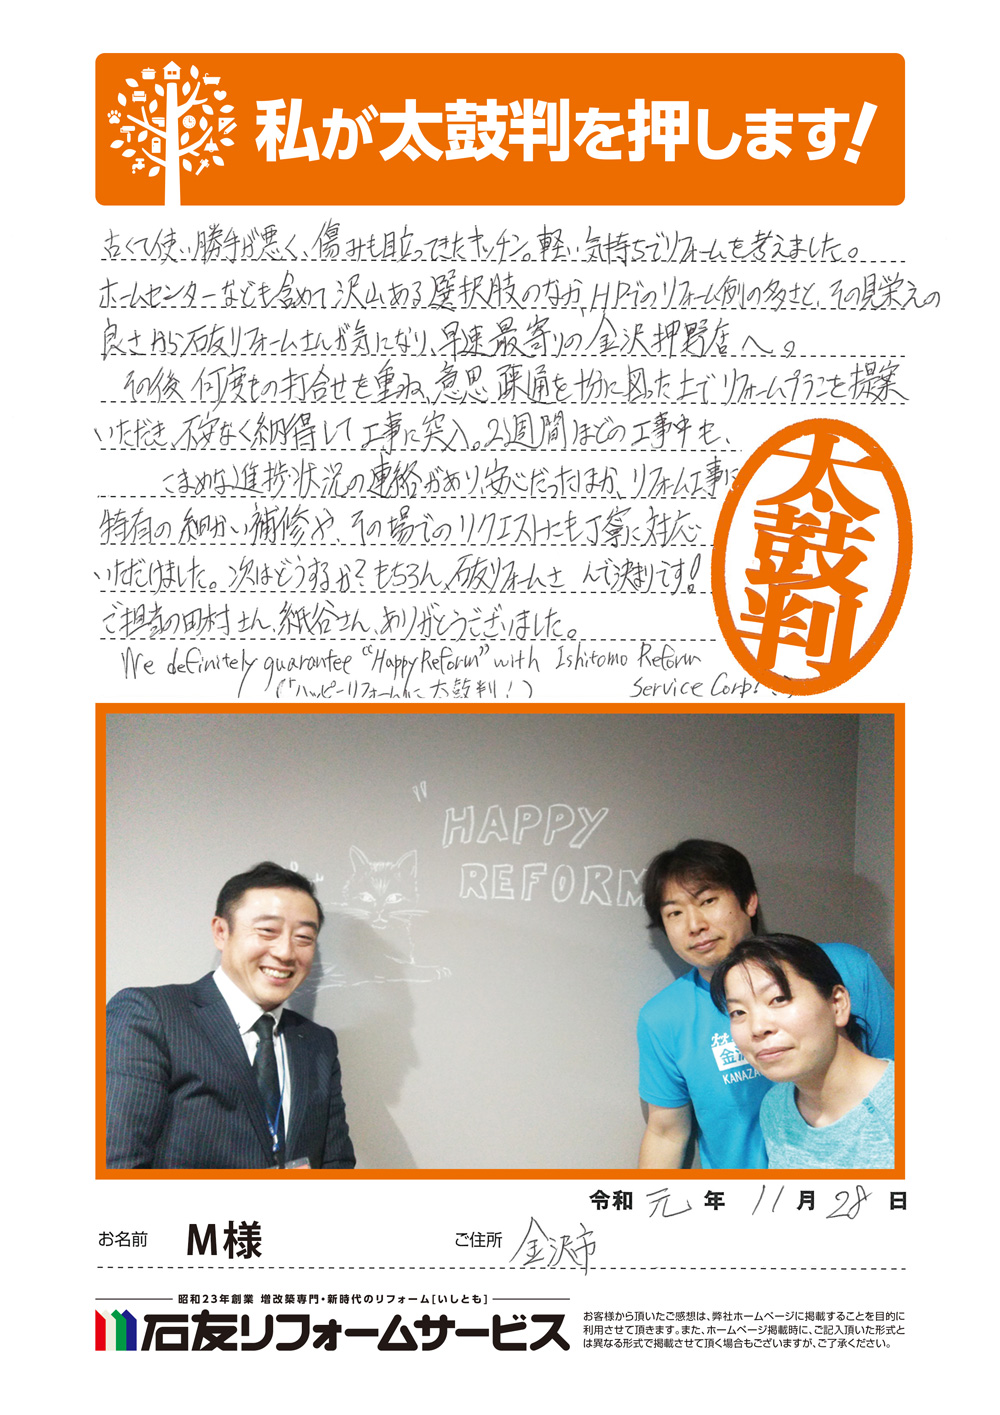 私が太鼓判を押します!
古くて使い勝手が悪く、傷みも目立ってきたキッチン。軽い気持ちでリフォームを考えました。
ホームセンターなども含めて沢山ある選択肢のなか、HPでのリフォーム例の多さと、その見栄えの
良さから石友リフォームさんが気になり、早速最寄りの金沢押野店へ。
その後、何度もの打合せを重ね、意思疎通を十分に図った上でリフォームプランを提案
いただき、不安なく納得して工事に突入。2週間ほどの工事中も、
こまめな進捗状況の連絡があり、安心だったほか、リフォーム工事に
特有の細かい補修や、その場でのリクエストにも丁寧に対応
いただけました。次はどうするか?もちろん、石友リフォームさんで決まりです!
ご担当の田村さん、紙谷さん、ありがとうございました。
We definitely guarantee "Happy Reform" with Ishitomo Reform
("ハッピーリフォーム"に太鼓判!) Service Corp! :)
太鼓判
"HAPPY
REFORM
金沢
KANAZA
令和 元 年 11 月 28 日
お名前 M様 ご住所 金沢市
昭和23年創業 増改築専門・新時代のリフォーム[いしとも]
石友リフォームサービス
お客様から頂いたご感想は、弊社ホームページに掲載することを目的に
利用させて頂きます。また、ホームページ掲載時に、ご記入頂いた形式と
は異なる形式で掲載させて頂く場合もございますが、ご了承ください。